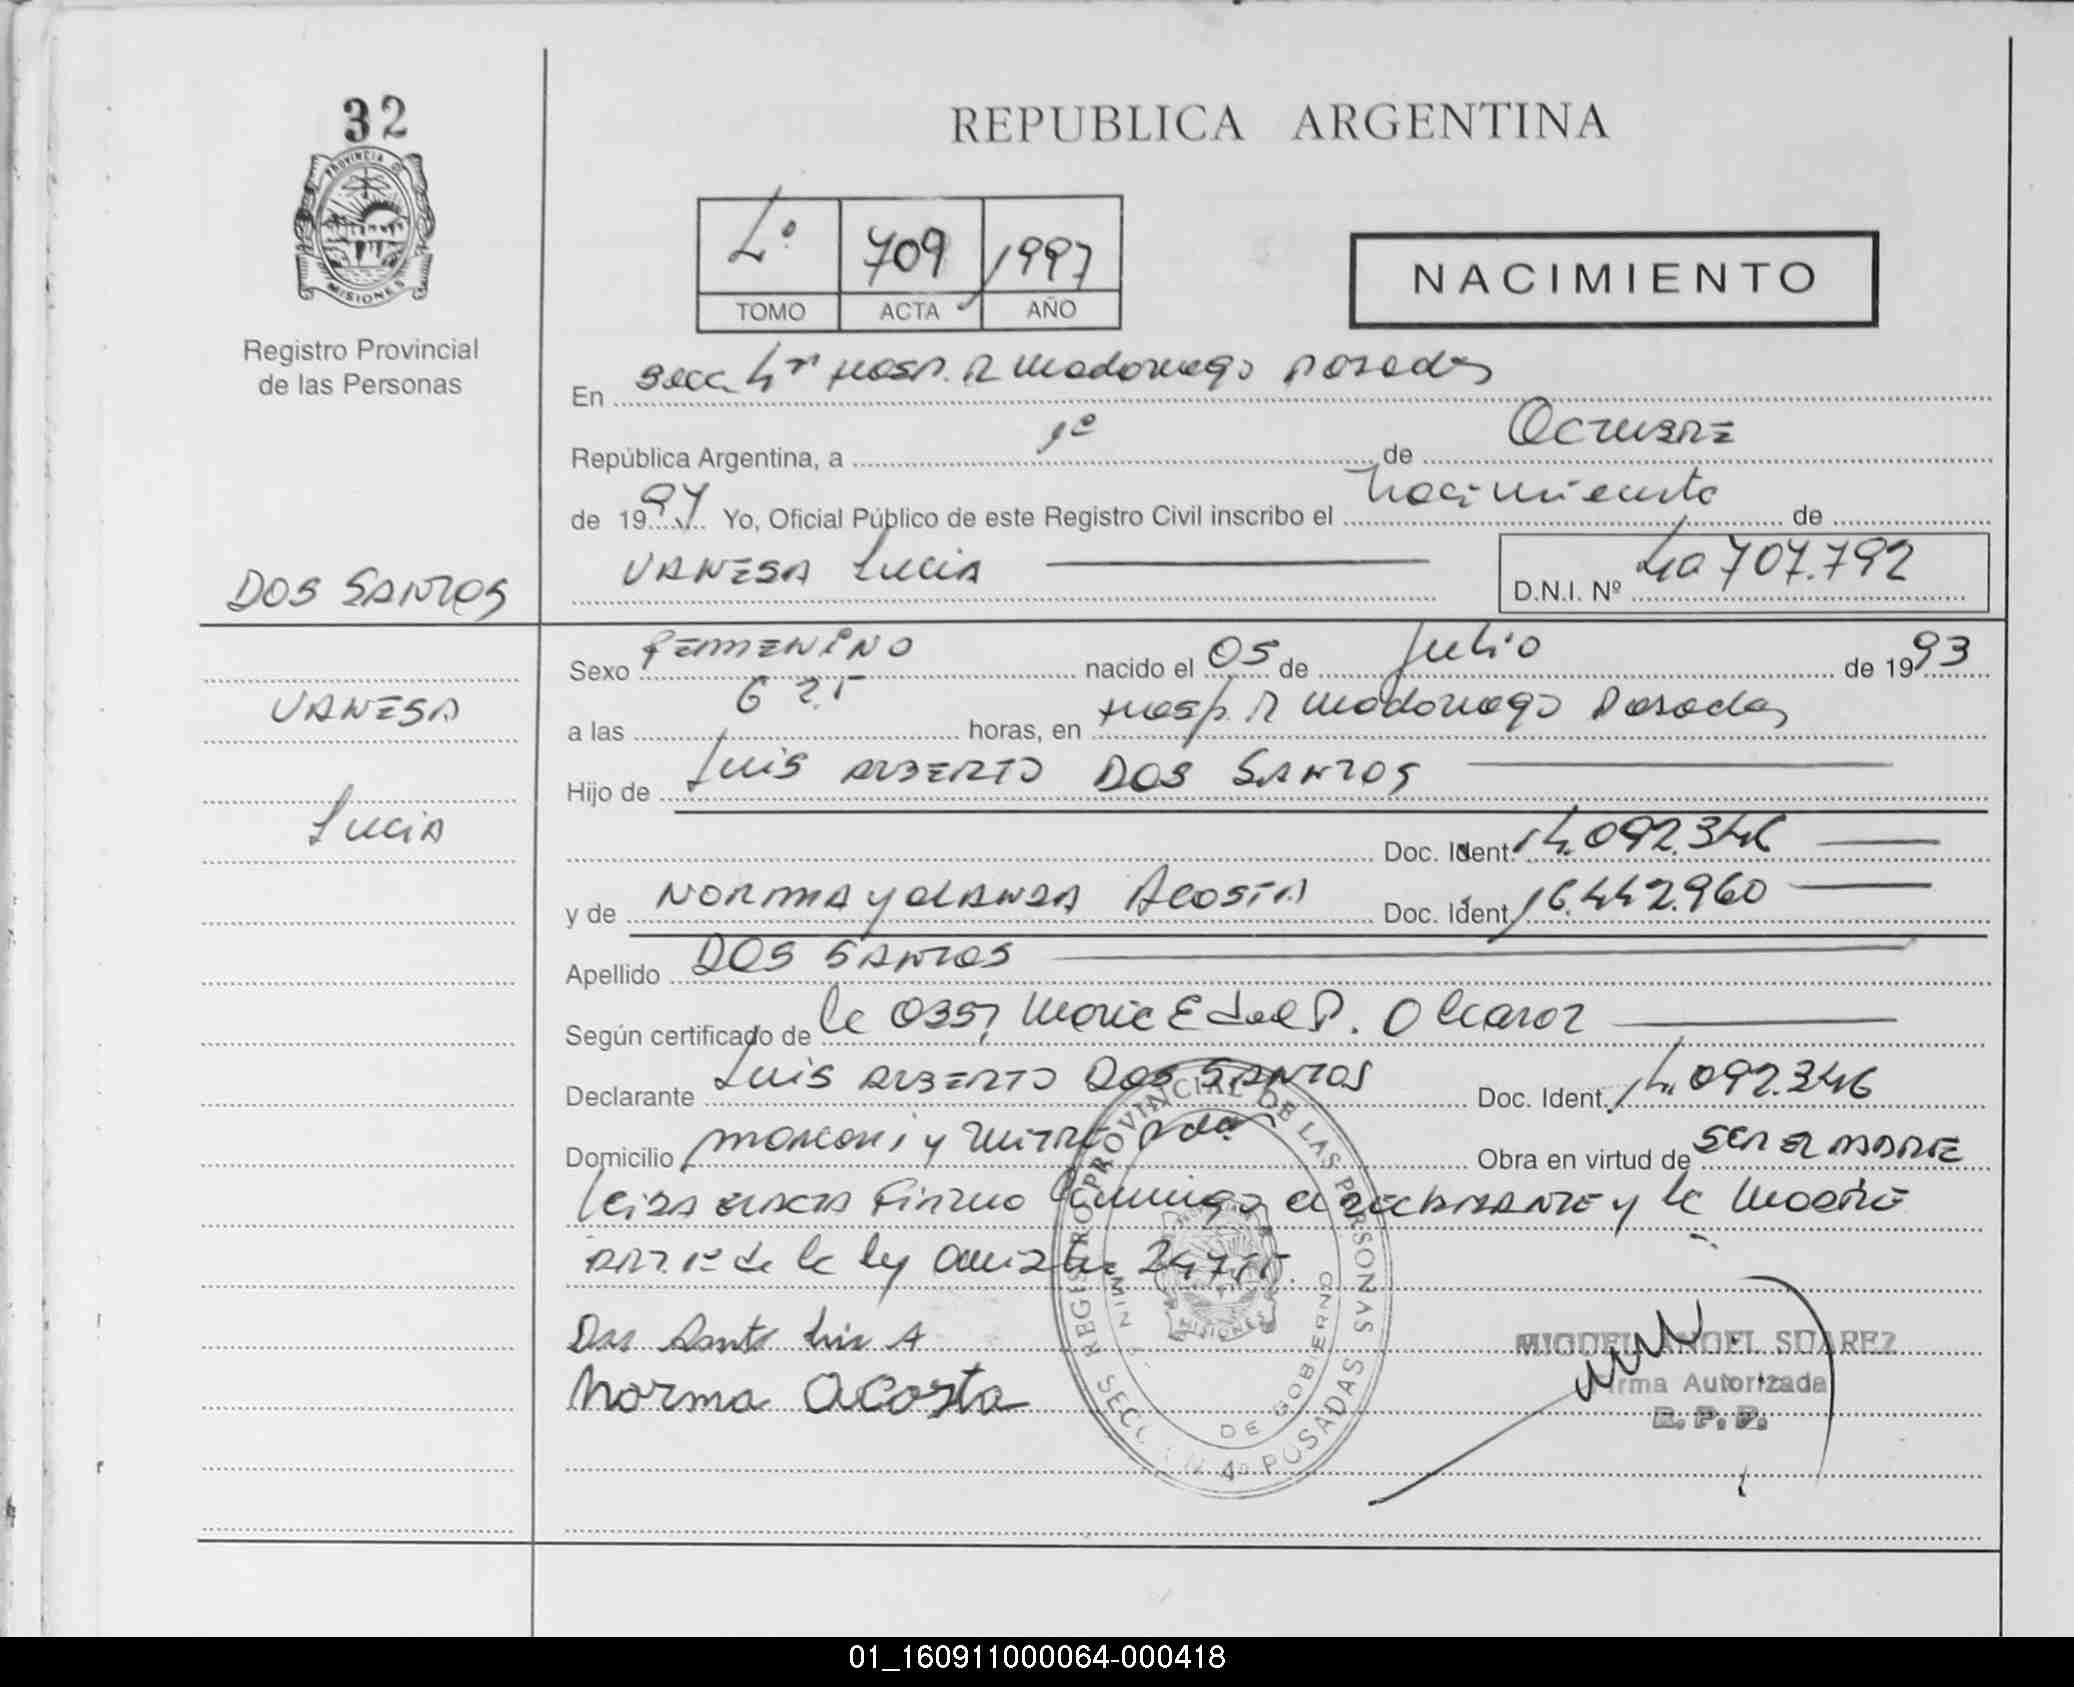 32
PROVINCIA DE
MISIONES
Registro Provincial
de las Personas
DOS SANTOS
VANESA
Lucia
REPUBLICA ARGENTINA
709 1997
TOMO ACTA AÑO
NACIMIENTO
En Secc 4ª Hosp. R Madariaga Posadas
República Argentina, a 1º de Octubre
de 1997 Yo, Oficial Público de este Registro Civil inscribo el Nacimiento de
VANESA Lucia D.N.I. Nº 40 707.792
Sexo FEMENINO nacido el 05 de Julio de 1993
a las horas, en Hosp. R Madariaga Posadas
Hijo de Luis ALBERTO DOS SANTOS
Doc. Ident 14.092.346
y de NORMA YOLANDA ACOSTA Doc. Ident 16.442.960
Apellido DOS SANTOS
Según certificado de la 0357
Declarante Luis ALBERTO DOS SANTOS Doc. Ident. 14.092.346
Domicilio Obra en virtud de SER EL PADRE
Leida ACTA Firmo conmigo el DECLARANTE y la Madre
ART. 1º de la ley
Dos Santos Luis A
Norma Acosta
REGISTRO PROVINCIAL DE LAS PERSONAS
DE GOBIERNO
MISIONES
4º POSADAS
MIGUEL ANGEL SUAREZ
Firma Autorizada
R. P. P.
01_160911000064-000418